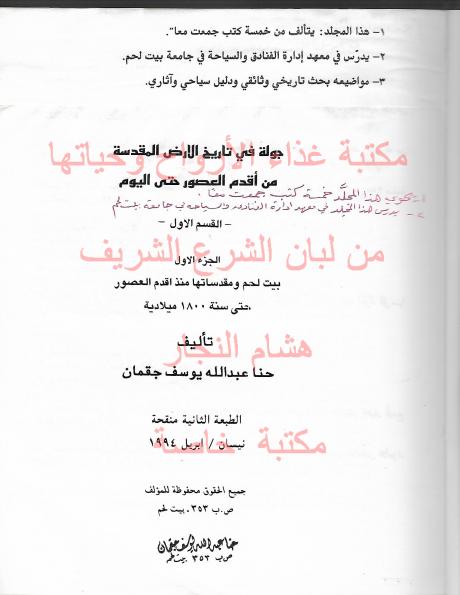 ١- هذا المجلد: يتألف من خمسة كتب جمعت معا".
٢- يدرّس في معهد إدارة الفنادق والسياحة في جامعة بيت لحم.
٣- مواضيعه بحث تاريخي وثائقي ودليل سياحي وآثاري.
مكتبة غذاء الأرواح وحياتها
جولة في تاريخ الارض المقدسة
من أقدم العصور حتى اليوم
١- يحوي هذا المجلّد خمسة كتب جمعت معًا.
٢- يدرس هذا المجلد في معهد ادارة الفنادق والسياحة في جامعة بيت لحم
- القسم الاول -
من لبان الشرع الشريف
الجزء الاول
بيت لحم ومقدساتها منذ اقدم العصور
حتى سنة ١٨٠٠ ميلادية
هشام النجار
تأليف
حنا عبدالله يوسف جقمان
الطبعة الثانية منقحة
مكتبة خاسة
نيسان / ابريل ١٩٩٤
جميع الحقوق محفوظة للمؤلف
ص.ب ٣٥٣، بيت لحم
حنا عبدالله يوسف جقمان
ص.ب ٣٥٣ بيت لحم